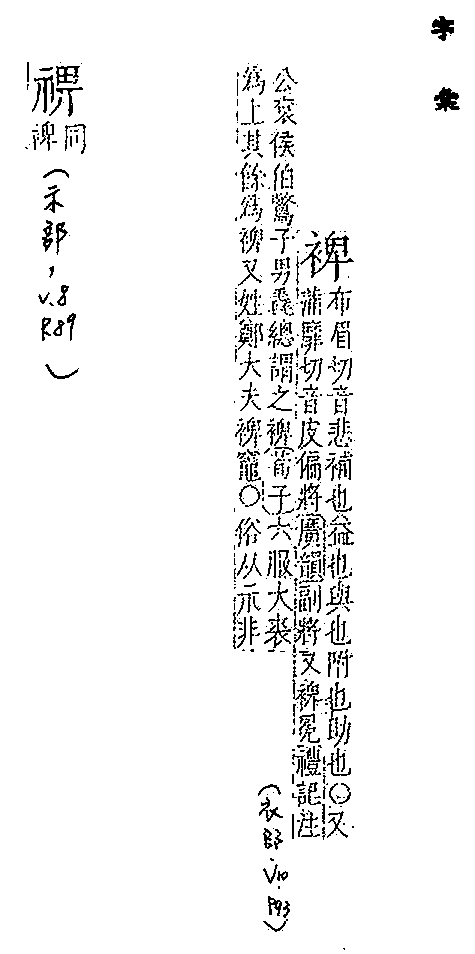 字彙
裨 布眉切音悲補也益也與也附也助也〇又
蒲靡切音皮偏將廣韻副將又裨冕禮記注
公袞侯伯鷩子男毳總謂之裨荀子大服大裘
爲上其餘爲裨又姓鄭大夫裨竈〇俗从示非
(衣部、V.10 P.93)
禆 同裨
(示部，V.8 P.89)